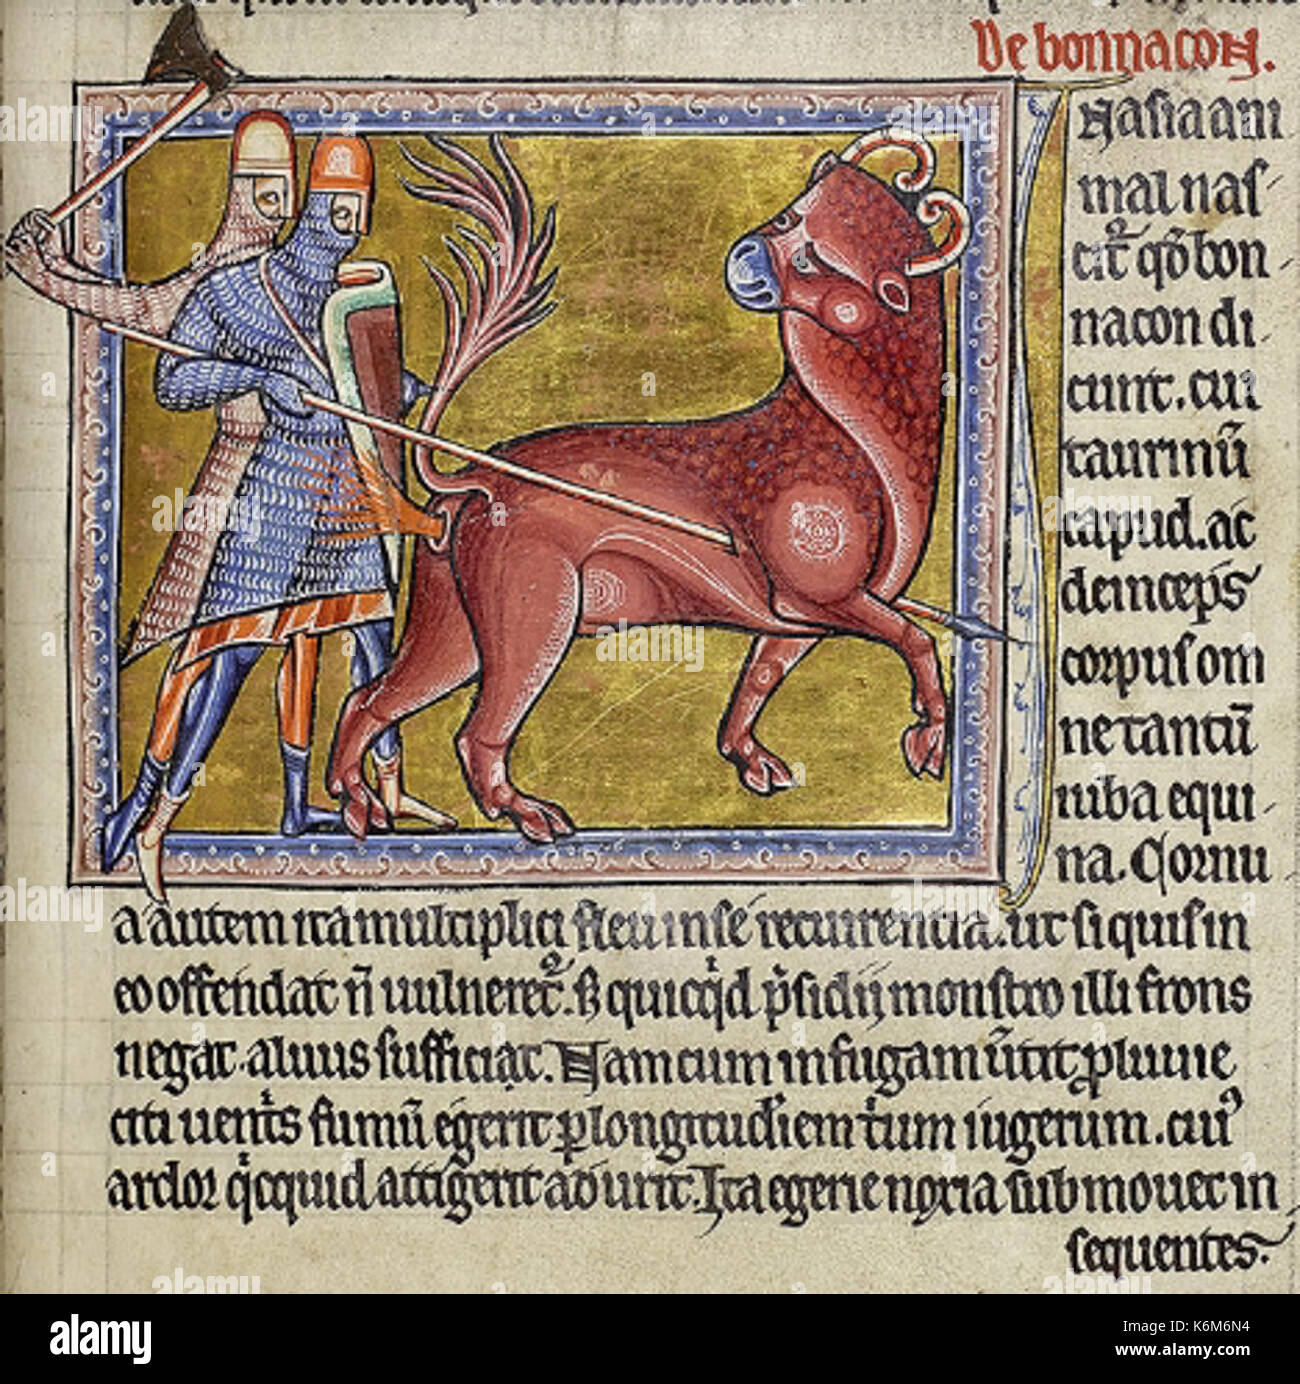 De bonnacon.
In asia ani
mal nas
cit᷑ qḋ bon
nacon di
cunt. cui
taurinū
capud. ac
deincep̄s
corpus om
ne tantū
iuba equi
na. Cornu
a autem ita multiplici flexu in se recurrencia. ut si quis in
eo offendat n̄ uulneret᷑. S; quicq̇d p̄sidij monstro illi frons
negat. aluus sufficiat. Nam cum in fugam ūtit ꝓluuie
citi uent̄s fumū egerit ꝑ longitudīem t̄um iugerum. cui᷒
ardor q̇cquid attigerit adurit. Ita egerie noxia submouet in
sequentes.
alamy stock photo
K6M6N4
www.alamy.com